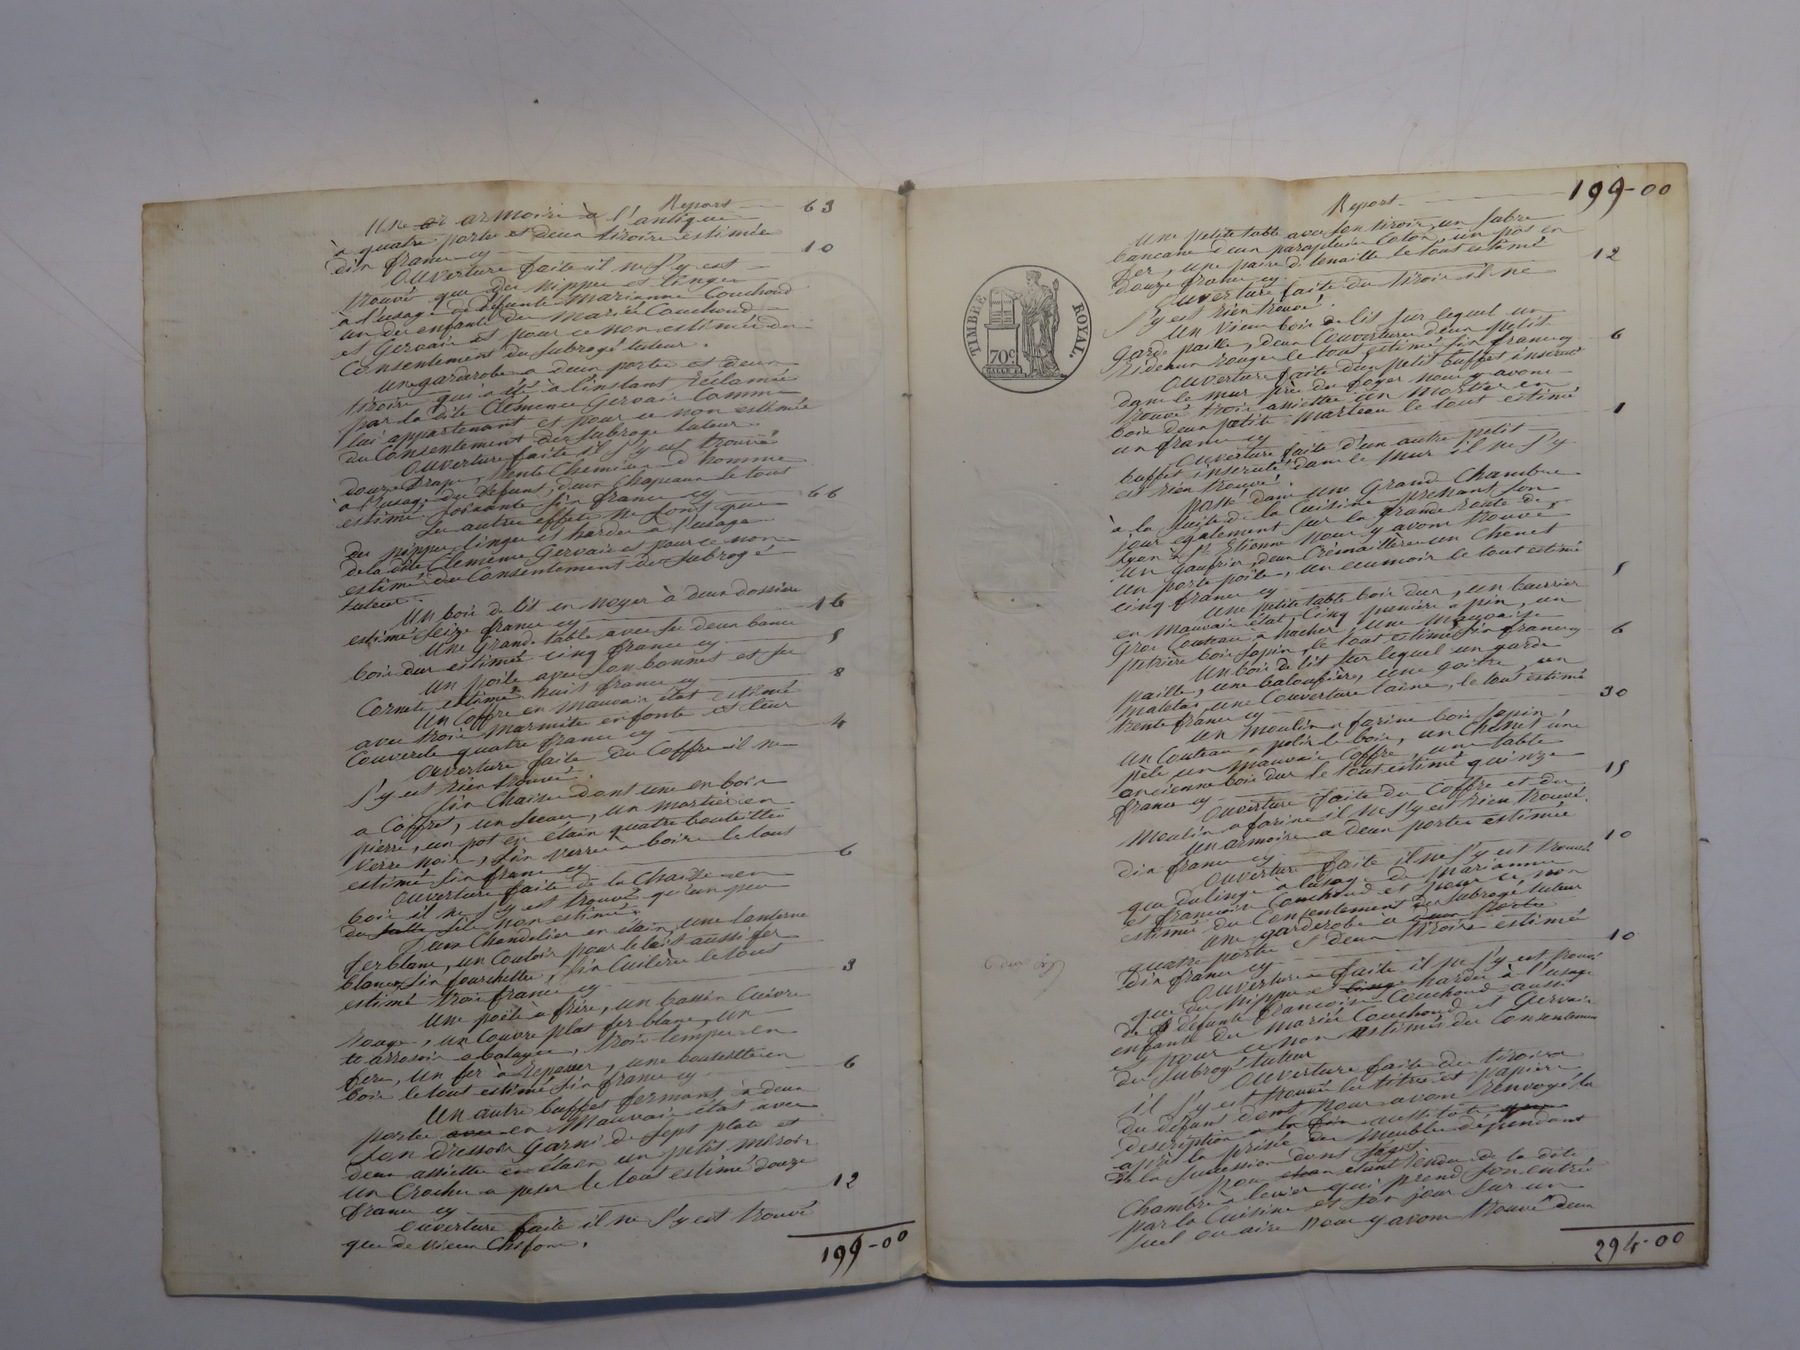 Report 63
Une ~~ar~~ armoire à l'antique
à quatre portes et deux tiroirs estimée
dix francs cy 10
Ouverture faite il ne s'y est
trouvé que des nippes et linges
à l'usage de défunte Marianne Couchoud
un des enfants des Mariés Couchoud
et Gervais et pour ce non estimés du
Consentement du subrogé tuteur.
Une garderobe a deux portes et deux
tiroirs qui a été à l'instant réclamée
par la dite Clémence Gervais comme
lui appartenant et pour ce non estimée
du Consentement du subrogé tuteur.
Ouverture faite il s'y est trouvé
douze draps, trente Chemises d'homme
à l'usage du défunt, deux Chapeaux le tout
estimé soixante six francs cy 66
Les autres effets ne sont que
des nippes linges et hardes à l'usage
de la dite Clémence Gervais et pour ce non
estimés du Consentement du Subrogé
tuteur
Un bois de lit en noyer à deux dossiers
estimé seize francs cy 16
Une Grande table avec ses deux bancs
bois dur estimée cinq francs cy 5
Un poile avec son bonnet et ses
Cornets estimé huit francs cy 8
Un Coffre en mauvais état estimé
avec trois marmites en fonte et leur
Couvercle quatre francs cy 4
Ouverture faite du Coffre il ne
s'y est rien trouvé.
Six Chaises dont une en bois
a Coffret, un Seau, un mortier en
pierre, un pot en étain quatre bouteilles
verre noir, six verres à boire le tout
estimé six francs cy 6
Ouverture faite de la Chaise en
bois il ne s'y est trouvé qu'un peu
du sel non estimé.
Deux Chandelier en étain, une lanterne
fer blanc, un Couloir pour le lait aussi fer
blanc, six fourchettes, six Cuilères le tout
estimé trois francs cy 3
Une poële à frire, un bassin Cuivre
Rouge, un Couvre plat fer blanc, un
arrosoir a balayer, trois lampes en
fer, un fer à repasser, une bouteille en
bois le tout estimé six francs cy 6
Un autre buffet fermant à deux
portes ~~avec~~ en Mauvais état avec
son dressoir Garni de sept plats et
deux assiettes en étain un petit miroir
un Crochet a peser le tout estimé douze
francs cy 12
Ouverture faite il ne s'y est trouvé
que de vieux Chifons.
199-00
Report 199-00
Une petite table avec son tiroir, un sabre
bancane deux parapluies Coton, un pos en
fer, une paire de tenaille le tout estimé
douze francs cy 12
Ouverture faite du tiroir il ne
s'y est rien trouvé.
Un Vieux bois de lit sur lequel un
Garde paille, deux Couvertures deux petits
Rideaux rouges le tout estimé six francs cy 6
Ouverture faite d'un petit buffet inséré
dans le mur près du foyer nous y avons
trouvé trois assiettes un mortier en
bois deux petits Marteau le tout estimé
un franc cy 1
Ouverture faite d'un autre petit
buffet inséré dans le Mur il ne s'y
est rien trouvé.
Passé dans une Grande Chambre
à la suite de la Cuisine prenant son
jour également sur la Grande Route de
Lyon à St Etienne nous y avons trouvé
Un Gaufrier, deux Crémaillères un Chenet
un porte poële, un ecumoir le tout estimé
cinq francs cy 5
Une petite table bois dur, un beurrier
en mauvais état, Cinq peniers a pin, un
Gros Couteau a hacher, Une mauvaise
pétrière bois sapin le tout estimé six francs cy 6
Un bois de lit sur lequel un garde
paille, une baloufière, une goitre, un
matelas, une Couverture laine, le tout estimé
trente francs cy 30
Un moulin a farine bois sapin,
Un Couteau a polir le bois, un Chenet une
pèle un mauvais Coffre, une table
ancienne bois dur le tout estimé quinze
francs cy 15
Ouverture faite du Coffre et du
Moulin a farine il ne s'y est rien trouvé.
Un armoire a deux portes estimée
dix francs cy 10
Ouverture faite il ne s'y est trouvé
que du linge à l'usage de Marianne
et françoise Couchoud et pour ce non
estimé du Consentement du subrogé tuteur
Une garderobe à ~~deux portes~~
quatre portes et deux tiroirs estimée
dix francs cy 10
Ouverture faite il ne s'y est trouvé
que des nippes et ~~linge~~ hardes à l'usage
de défunte francoise Couchoud aussi
enfants des Mariés Couchoud et Gervais
et pour ce non estimés du Consentement
du subrogé tuteur
Ouverture faite des tiroirs
il s'y est trouvé les titres et papiers
du défunt dont nous avons renvoyé la
description ~~a la fin~~ aussitôt
après la prisée des meubles dépendant
de la succession dont s'agit
Nous étant rendu de la dite
Chambre à levier qui prend son entrée
par la Cuisine et son jour sur un
suel ou aire nous y avons trouvé deux
294-00
TIMBRE ROYAL.
70c.